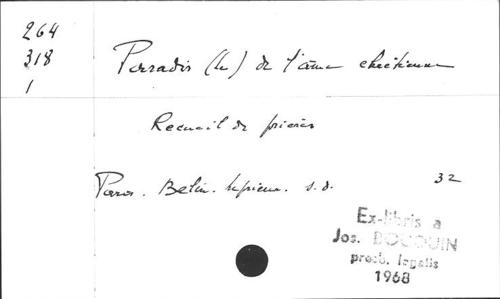 264
318
1
Paradis (le) de l'âme chrétienne
Recueil de prières
Paris. Belin. s.d.
32
Ex-libris a
Jos. BOCQUIN
presb. legalis
1968